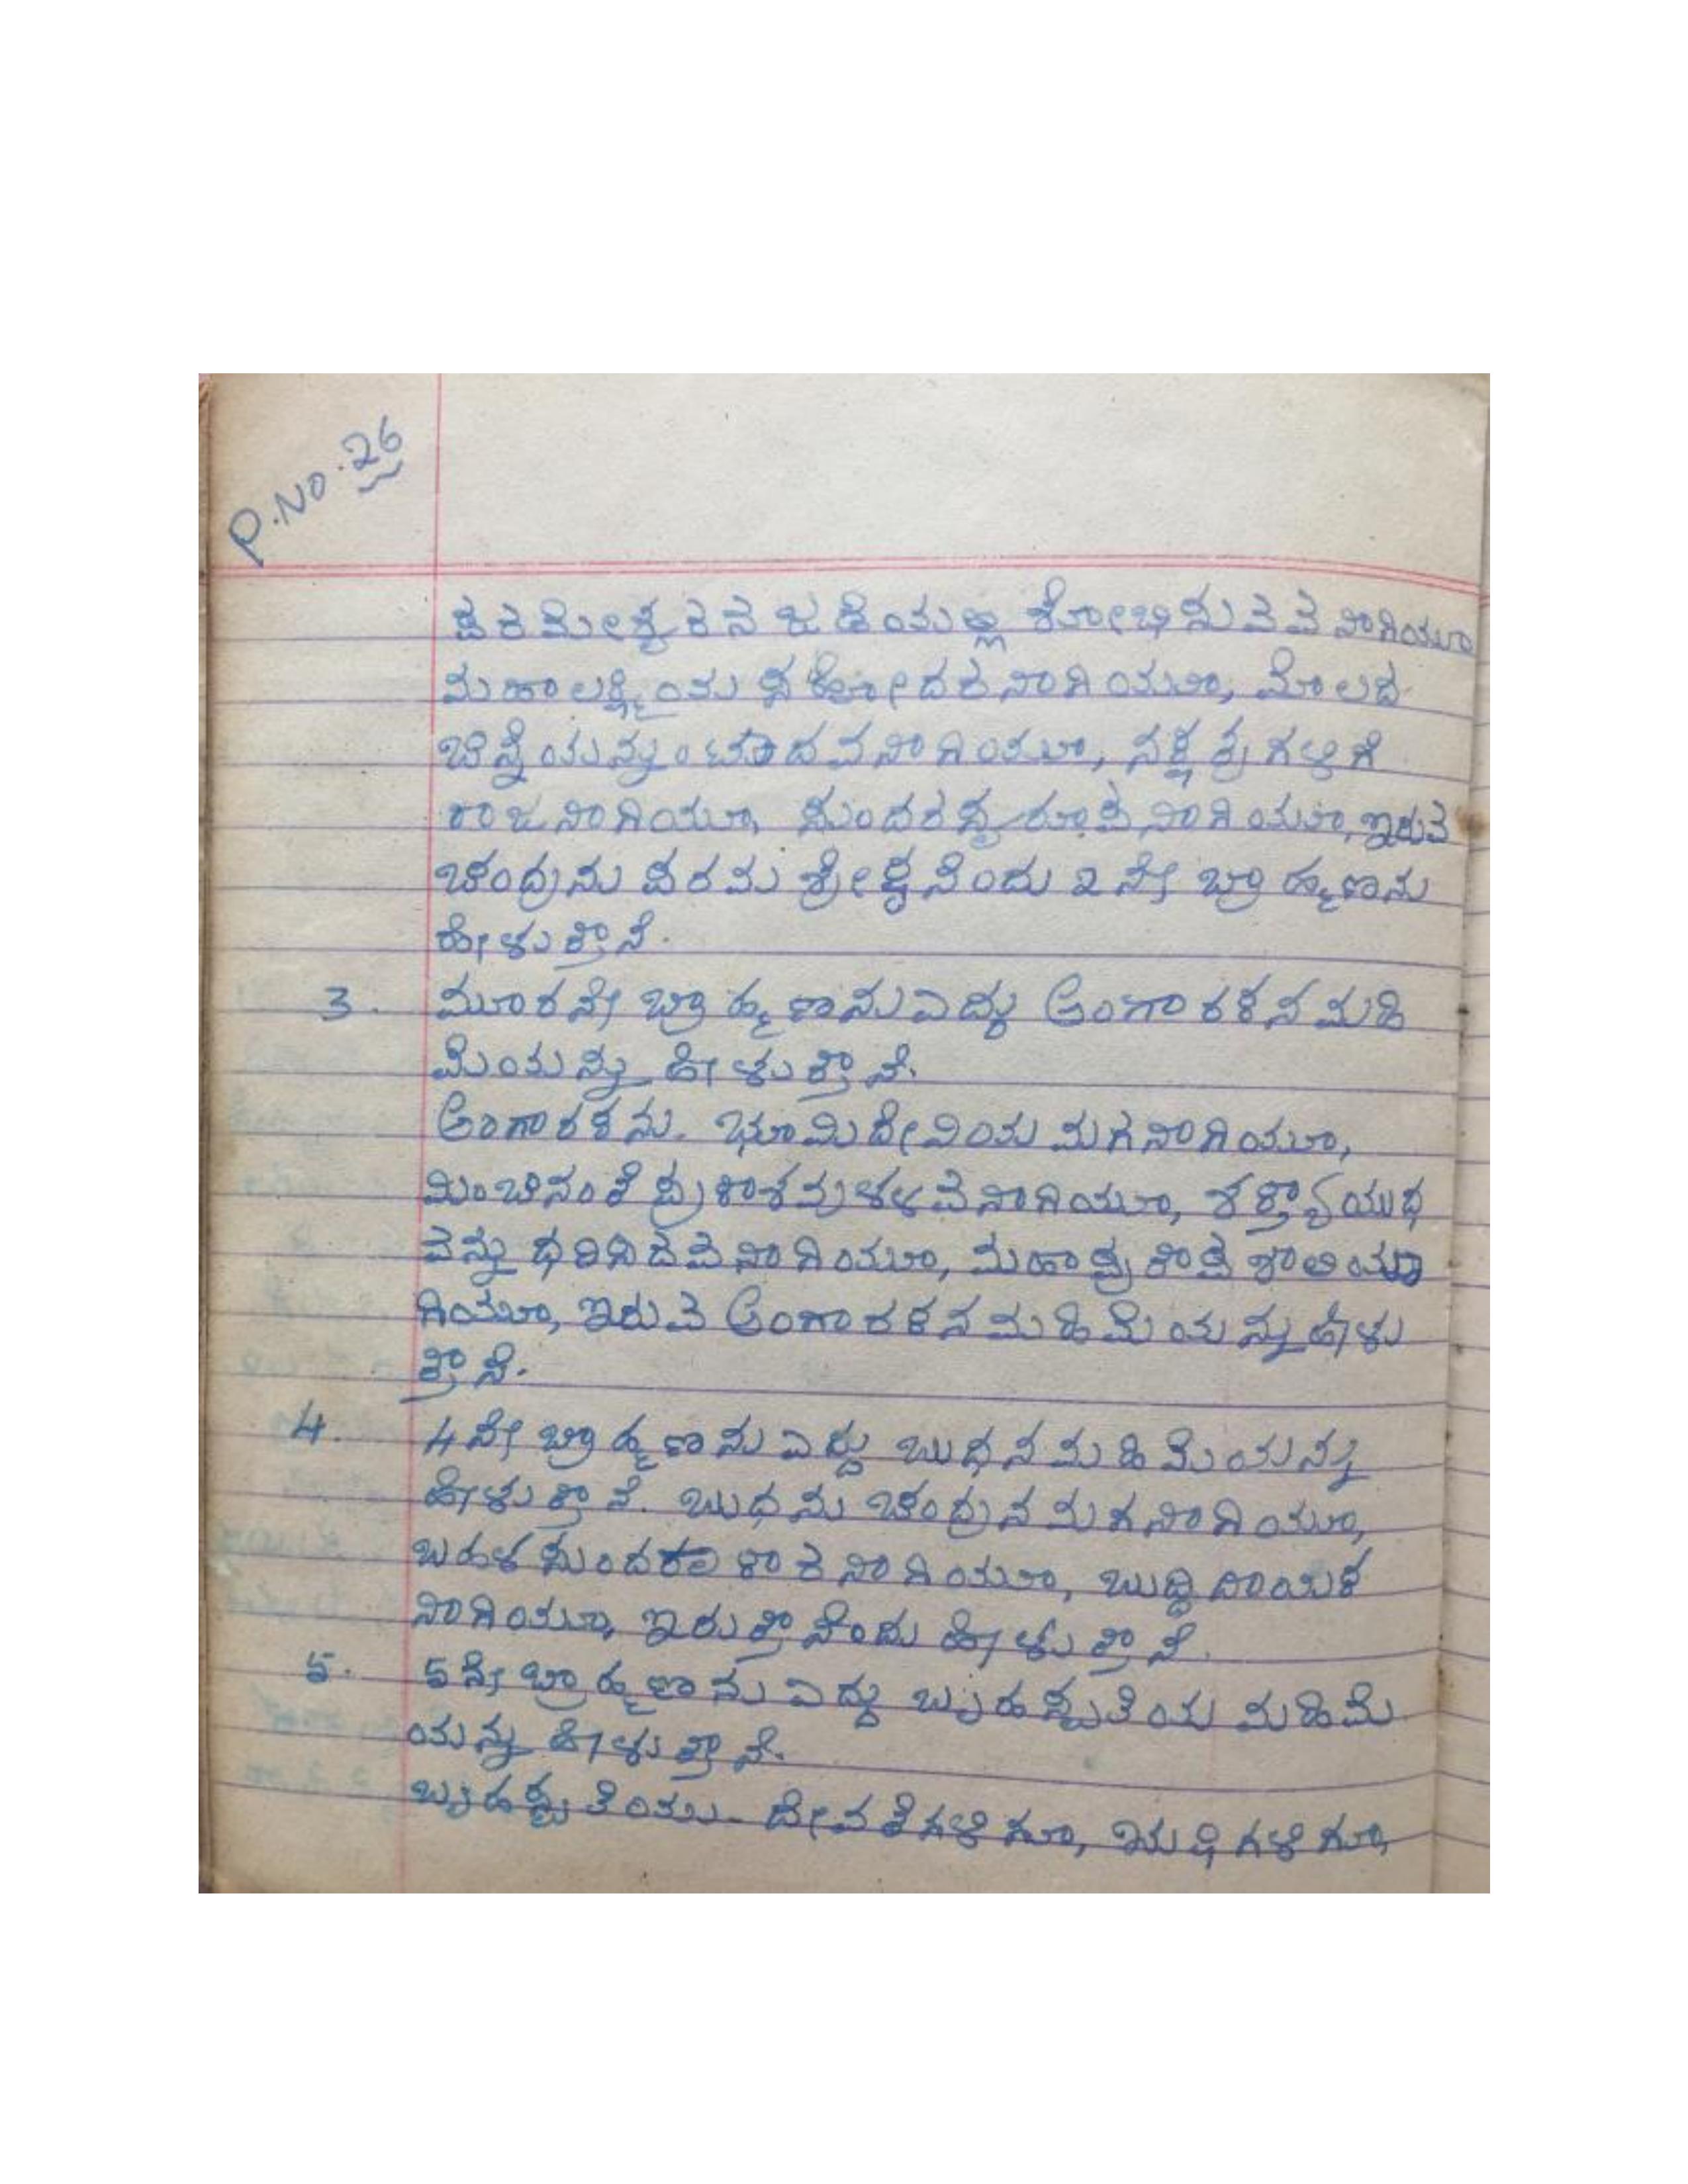 P.No.26
ಪರಮೇಶ್ವರನ ಜಡೆಯಲ್ಲಿ ಶೋಭಿಸುವವನಾಗಿಯೂ
ಮಹಾಲಕ್ಷ್ಮಿಯ ಸಹೋದರನಾಗಿಯೂ, ಮೊಲದ
ಚಿನ್ನೆಯನ್ನುಂಟಾದವನಾಗಿಯೂ, ನಕ್ಷತ್ರಗಳಿಗೆ
ರಾಜನಾಗಿಯೂ, ಸುಂದರಸ್ವರೂಪನಾಗಿಯೂ, ಇರುವ
ಚಂದ್ರನು ಪರಮ ಶ್ರೇಷ್ಠನೆಂದು 2 ನೇ ಬ್ರಾಹ್ಮಣನು
ಹೇಳುತ್ತಾನೆ.
3. ಮೂರನೇ ಬ್ರಾಹ್ಮಣನು ಎದ್ದು ಅಂಗಾರಕನ ಮಹಿ
ಮೆಯನ್ನು ಹೇಳುತ್ತಾನೆ.
ಅಂಗಾರಕನು. ಭೂಮಿದೇವಿಯ ಮಗನಾಗಿಯೂ,
ಮಿಂಚಿನಂತೆ ಪ್ರಕಾಶವುಳಳವನಾಗಿಯೂ, ಶಕ್ತ್ಯಾಯುಧ
ವನ್ನು ಧರಿಸಿದವನಾಗಿಯೂ, ಮಹಾ ಪ್ರತಾಪಶಾಲಿಯಾ
ಗಿಯೂ, ಇರುವ ಅಂಗಾರಕನ ಮಹಿಮೆಯನ್ನು ಹೇಳು
ತ್ತಾನೆ.
4. 4ನೇ ಬ್ರಾಹ್ಮಣನು ಎದ್ದು ಬುಧನ ಮಹಿಮೆಯನ್ನು
ಹೇಳುತ್ತಾನೆ. ಬುಧನು ಚಂದ್ರನ ಮಗನಾಗಿಯೂ,
ಬಹಳ ಸುಂದರಾಕಾರನಾಗಿಯೂ, ಬುದ್ಧಿದಾಯಕ
ನಾಗಿಯೂ, ಇರುತ್ತಾನೆಂದು ಹೇಳುತ್ತಾನೆ.
5. 5ನೇ ಬ್ರಾಹ್ಮಣನು ಎದ್ದು ಬೃಹಸ್ಪತಿಯ ಮಹಿಮೆ
ಯನ್ನು ಹೇಳುತ್ತಾನೆ.
ಬೃಹಸ್ಪತಿಯು. ದೇವತೆಗಳಿಗೂ, ಋಷಿಗಳಿಗೂ,